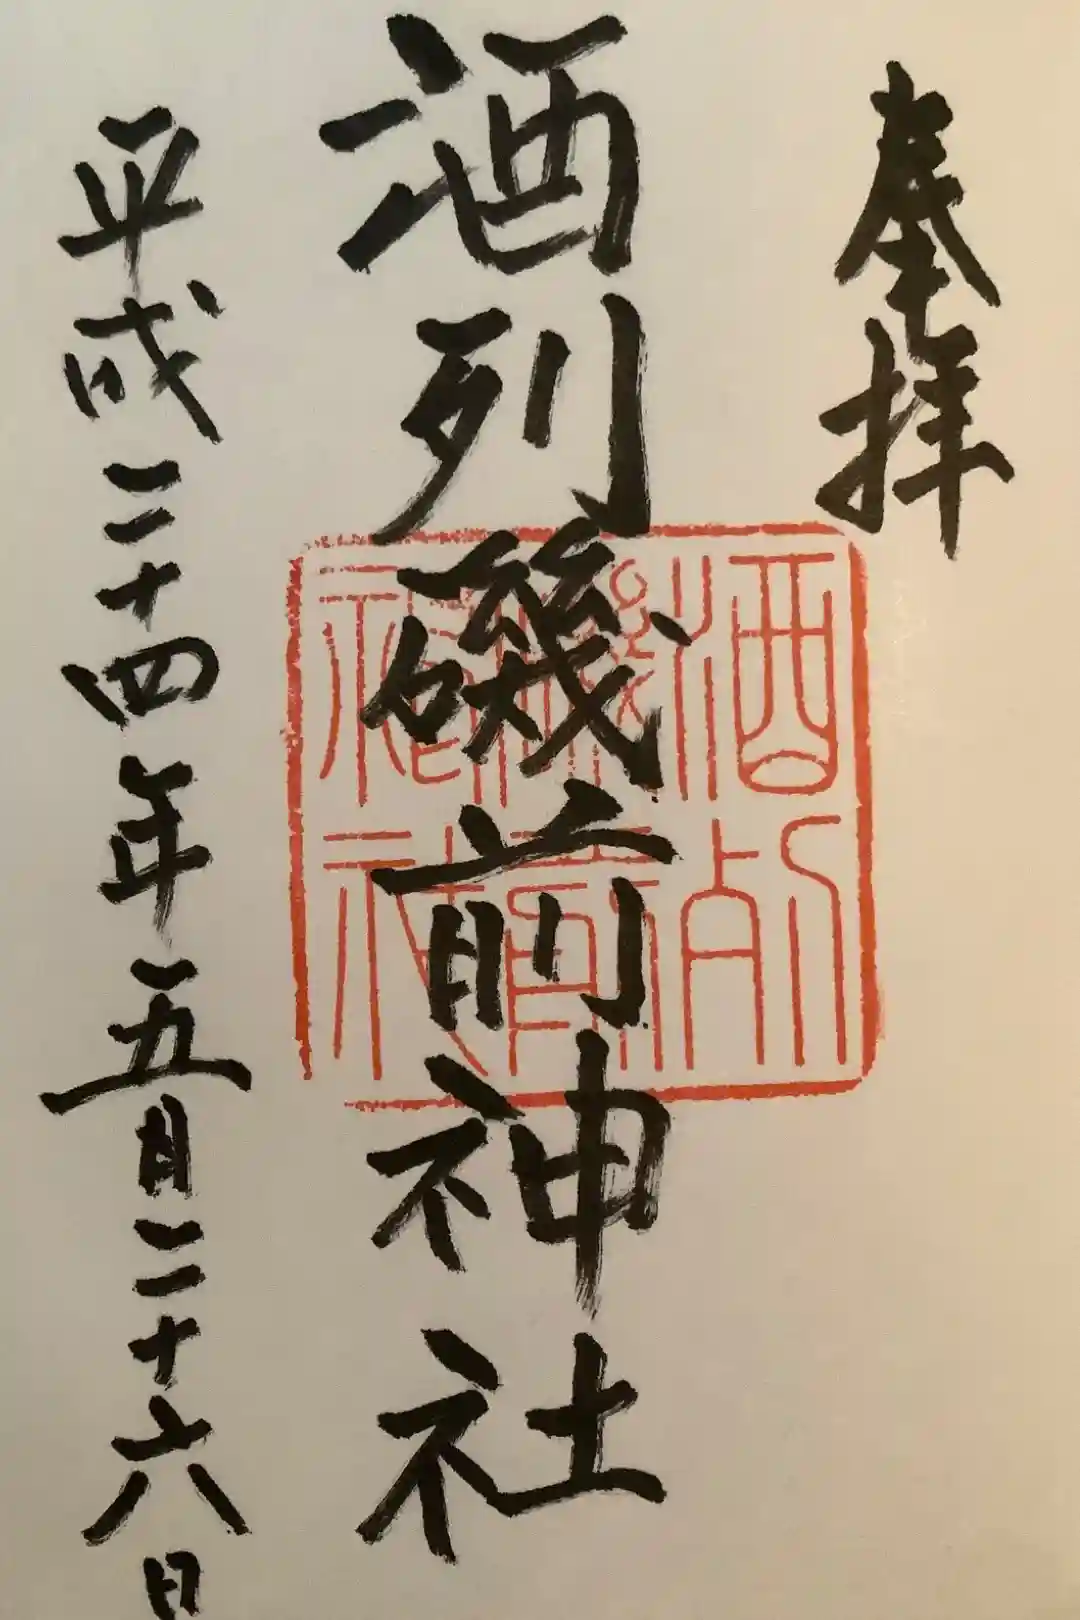 奉拝
酒列磯前神社
平成二十四年五月二十六日
酒列